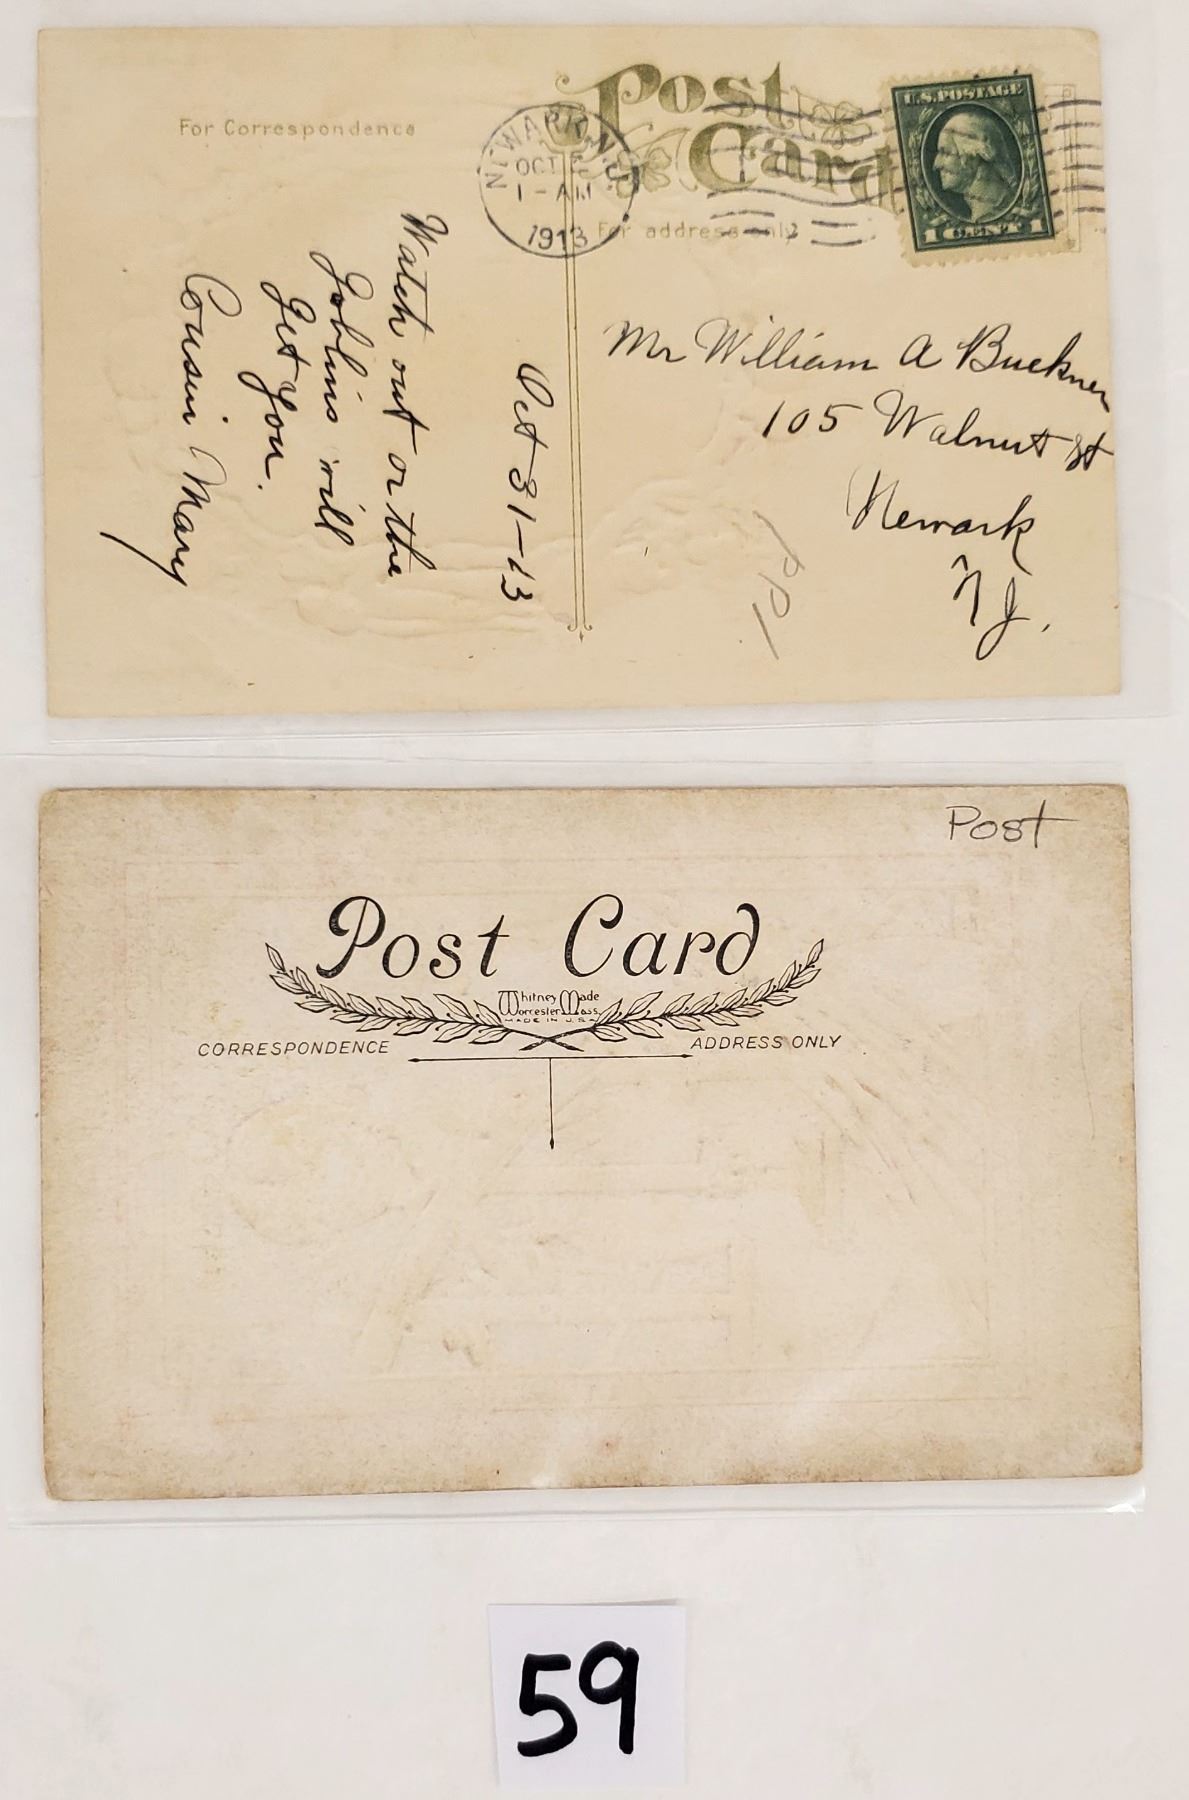 Post
Card
For Correspondence
For address only
NEWARK, N.J.
OCT
1-AM
1913
U.S. POSTAGE
1 CENT 1
Oct 31-13
Watch out or the
Goblins will
Get You.
Cousin Mary
Mr William A Buckner
105 Walnut St
Newark
N J.
Post
Post Card
Whitney Made
Worcester Mass.
MADE IN U.S.A.
CORRESPONDENCE
ADDRESS ONLY
59